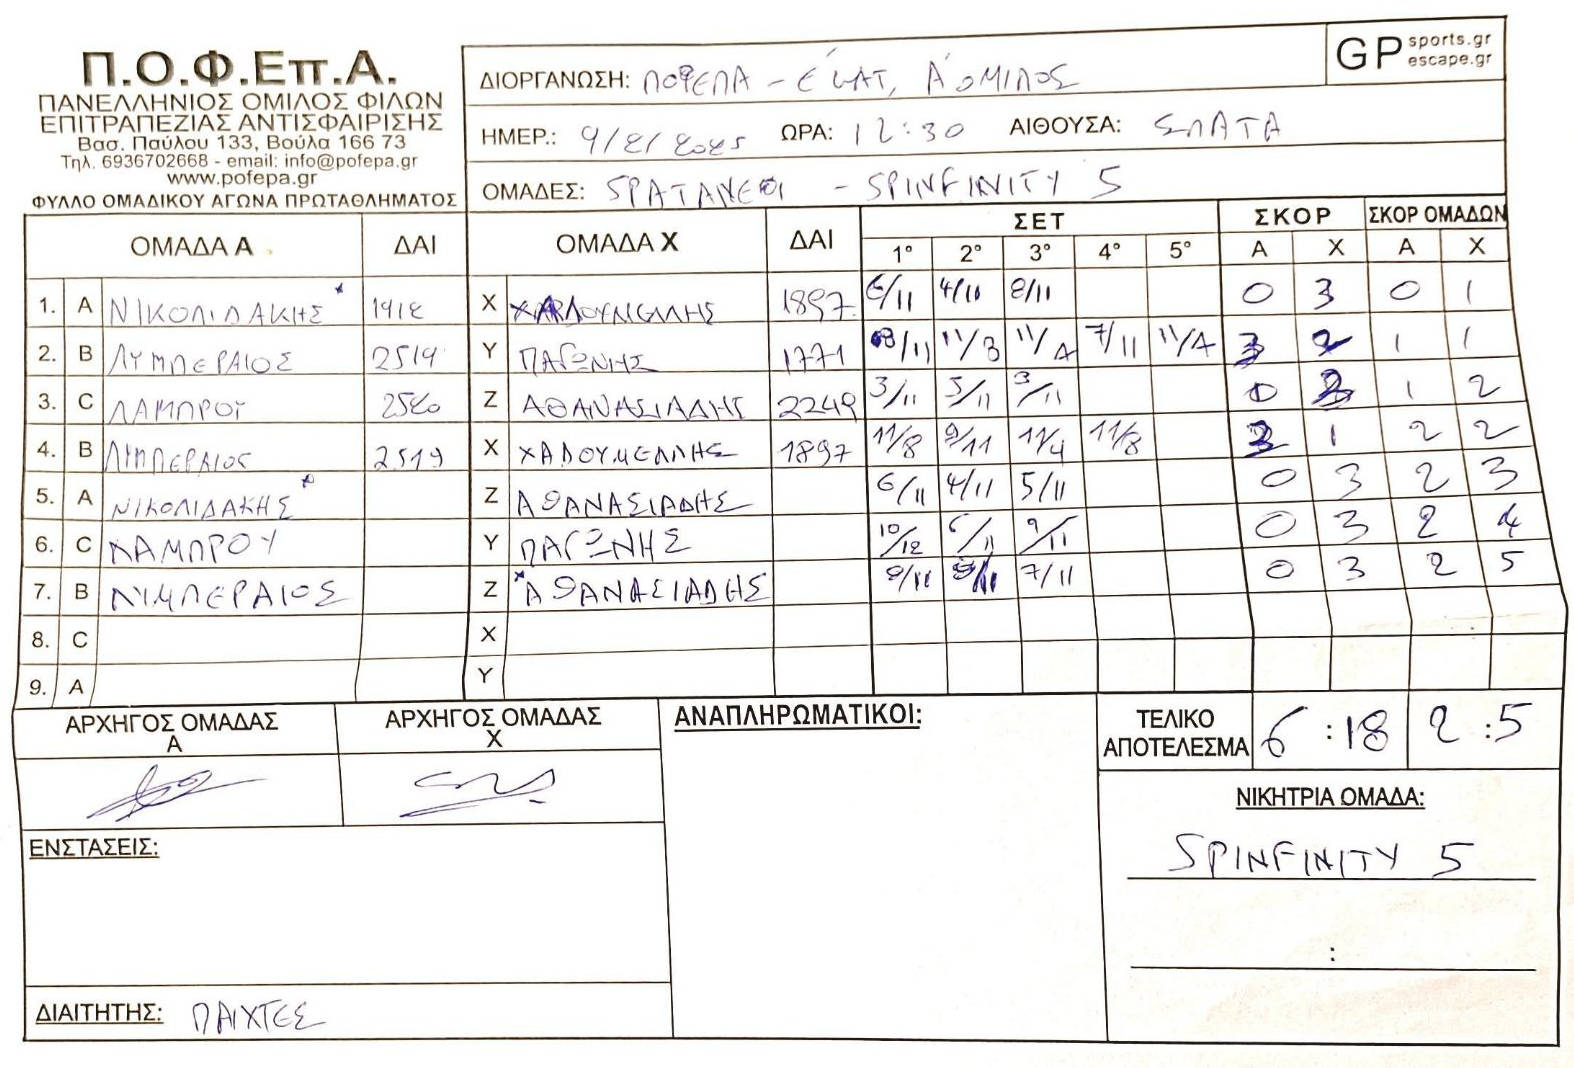 Π.Ο.Φ.Επ.Α.
ΠΑΝΕΛΛΗΝΙΟΣ ΟΜΙΛΟΣ ΦΙΛΩΝ
ΕΠΙΤΡΑΠΕΖΙΑΣ ΑΝΤΙΣΦΑΙΡΙΣΗΣ
Βασ. Παύλου 133, Βούλα 166 73
Τηλ. 6936702668 - email: info@pofepa.gr
www.pofepa.gr
ΦΥΛΛΟ ΟΜΑΔΙΚΟΥ ΑΓΩΝΑ ΠΡΩΤΑΘΛΗΜΑΤΟΣ
ΔΙΟΡΓΑΝΩΣΗ: ΠΟΦΕΠΑ - Ε' ΚΑΤ, Α' ΟΜΙΛΟΣ
GP sports.gr
escape.gr
ΗΜΕΡ.: 9/2/2025 ΩΡΑ: 12:30 ΑΙΘΟΥΣΑ: ΣΠΑΤΑ
ΟΜΑΔΕΣ: - SPINFINITY 5
ΟΜΑΔΑ Α ΔΑΙ ΟΜΑΔΑ Χ ΔΑΙ ΣΕΤ ΣΚΟΡ ΣΚΟΡ ΟΜΑΔΩΝ
1° 2° 3° 4° 5° Α Χ Α Χ
1. A ΝΙΚΟΛΙΔΑΚΗΣ * 1912 X 1897 6/11 4/11 8/11 0 3 0 1
2. B ΛΥΜΠΕΡΑΙΟΣ 2519 Y ΠΑΓΩΝΗΣ 1771 8/11 11/3 11/4 7/11 11/4 3 2 1 1
3. C ΛΑΜΠΡΟΥ 2520 Z ΑΘΑΝΑΣΙΑΔΗΣ 2249 3/11 5/11 3/11 0 3 1 2
4. B ΛΥΜΠΕΡΑΙΟΣ 2519 X ΧΑΛΟΥΜΕΛΛΗΣ 1897 11/8 9/11 11/4 11/8 3 1 2 2
5. A ΝΙΚΟΛΙΔΑΚΗΣ * Z ΑΘΑΝΑΣΙΑΔΗΣ 6/11 4/11 5/11 0 3 2 3
6. C ΛΑΜΠΡΟΥ Y ΠΑΓΩΝΗΣ 10/12 6/11 9/11 0 3 2 4
7. B ΛΥΜΠΕΡΑΙΟΣ Z * ΑΘΑΝΑΣΙΑΔΗΣ 9/11 9/11 7/11 0 3 2 5
8. C X
9. A Y
ΑΡΧΗΓΟΣ ΟΜΑΔΑΣ
Α
ΑΡΧΗΓΟΣ ΟΜΑΔΑΣ
Χ
ΑΝΑΠΛΗΡΩΜΑΤΙΚΟΙ:
ΤΕΛΙΚΟ
ΑΠΟΤΕΛΕΣΜΑ 6 : 18 2 : 5
ΝΙΚΗΤΡΙΑ ΟΜΑΔΑ:
SPINFINITY 5
:
ΕΝΣΤΑΣΕΙΣ:
ΔΙΑΙΤΗΤΗΣ: ΠΑΙΧΤΕΣ